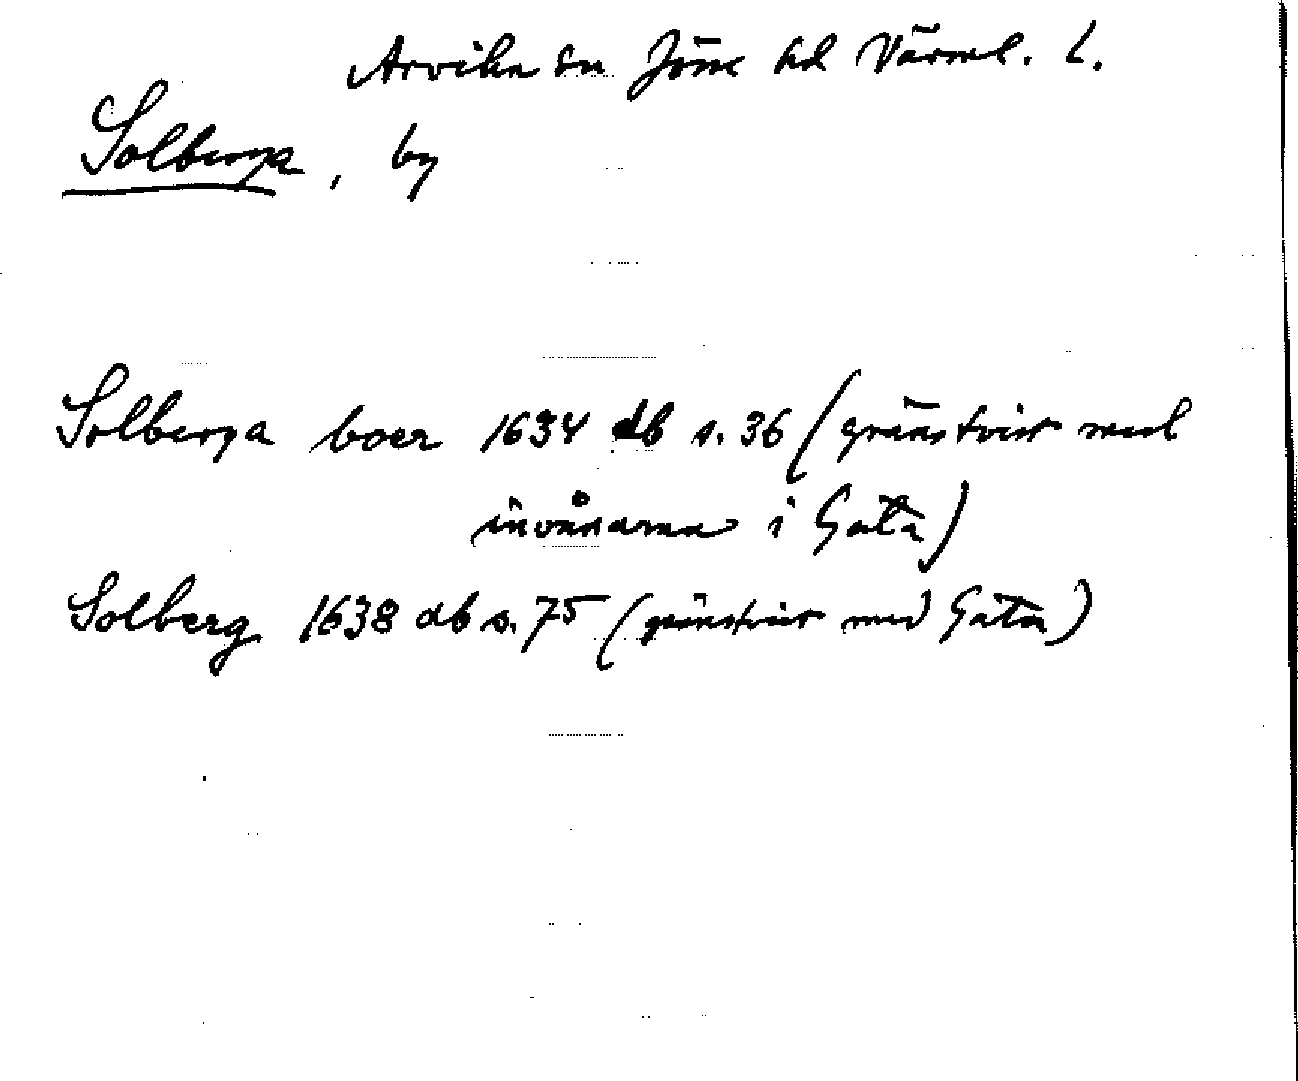 Arvika sn Jösse hd Värml. L.
Solberga, by
Solberga boer 1634 db s. 36 (gränstvist med
invånarna i Gata)
Solberg 1638 db s. 75 (gränstvist med Gata)